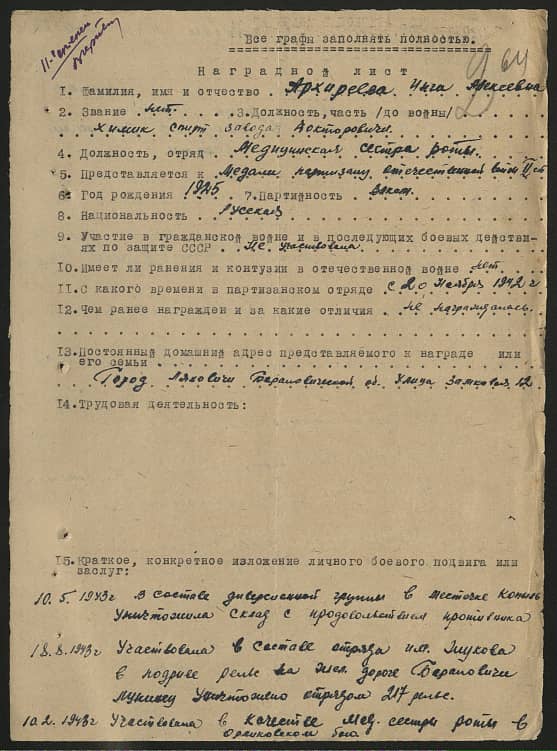 II-степени
Все графы заполнять полностью.
64
Наградной лист
1. Фамилия, имя и отчество . Архиреева Инга Алексеевна
2. Звание нет. 3. Должность, часть /до войны/
Химик спирт завода
4. Должность, отряд . Медицинская сестра роты.
5. Представляется к Медали партизану отечественной войны II ст
6. Год рождения 1925 . 7. Партийность . влксм.
8. Национальность . Русская
9. Участие в гражданской войне и в последующих боевых действи-
ях по защите СССР . Не участвовала
10. Имеет ли ранения и контузии в отечественной войне нет.
11. С какого времени в партизанском отряде . с 20 ноября 1942 г
12. Чем ранее награжден и за какие отличия . не награждалась.
13. Постоянный домашний адрес представляемого к награде или
его семьи
Город Ляховичи Барановической об. Улица Замковая 12
14. Трудовая деятельность:
15. Краткое, конкретное изложение личного боевого подвига или
заслуг:
10. 5. 1943г В составе диверсионной группы в местечке Копыль
Уничтожила склад с продовольствием противника
18. 8. 1943г Участвовала в составе отряда им. Жукова
в подрыве рельс на жел. дороге Барановичи
Лунинец Уничтожено отрядом 217 рельс.
10. 2. 1943г Участвовала в качестве мед. сестры роты в
бою.